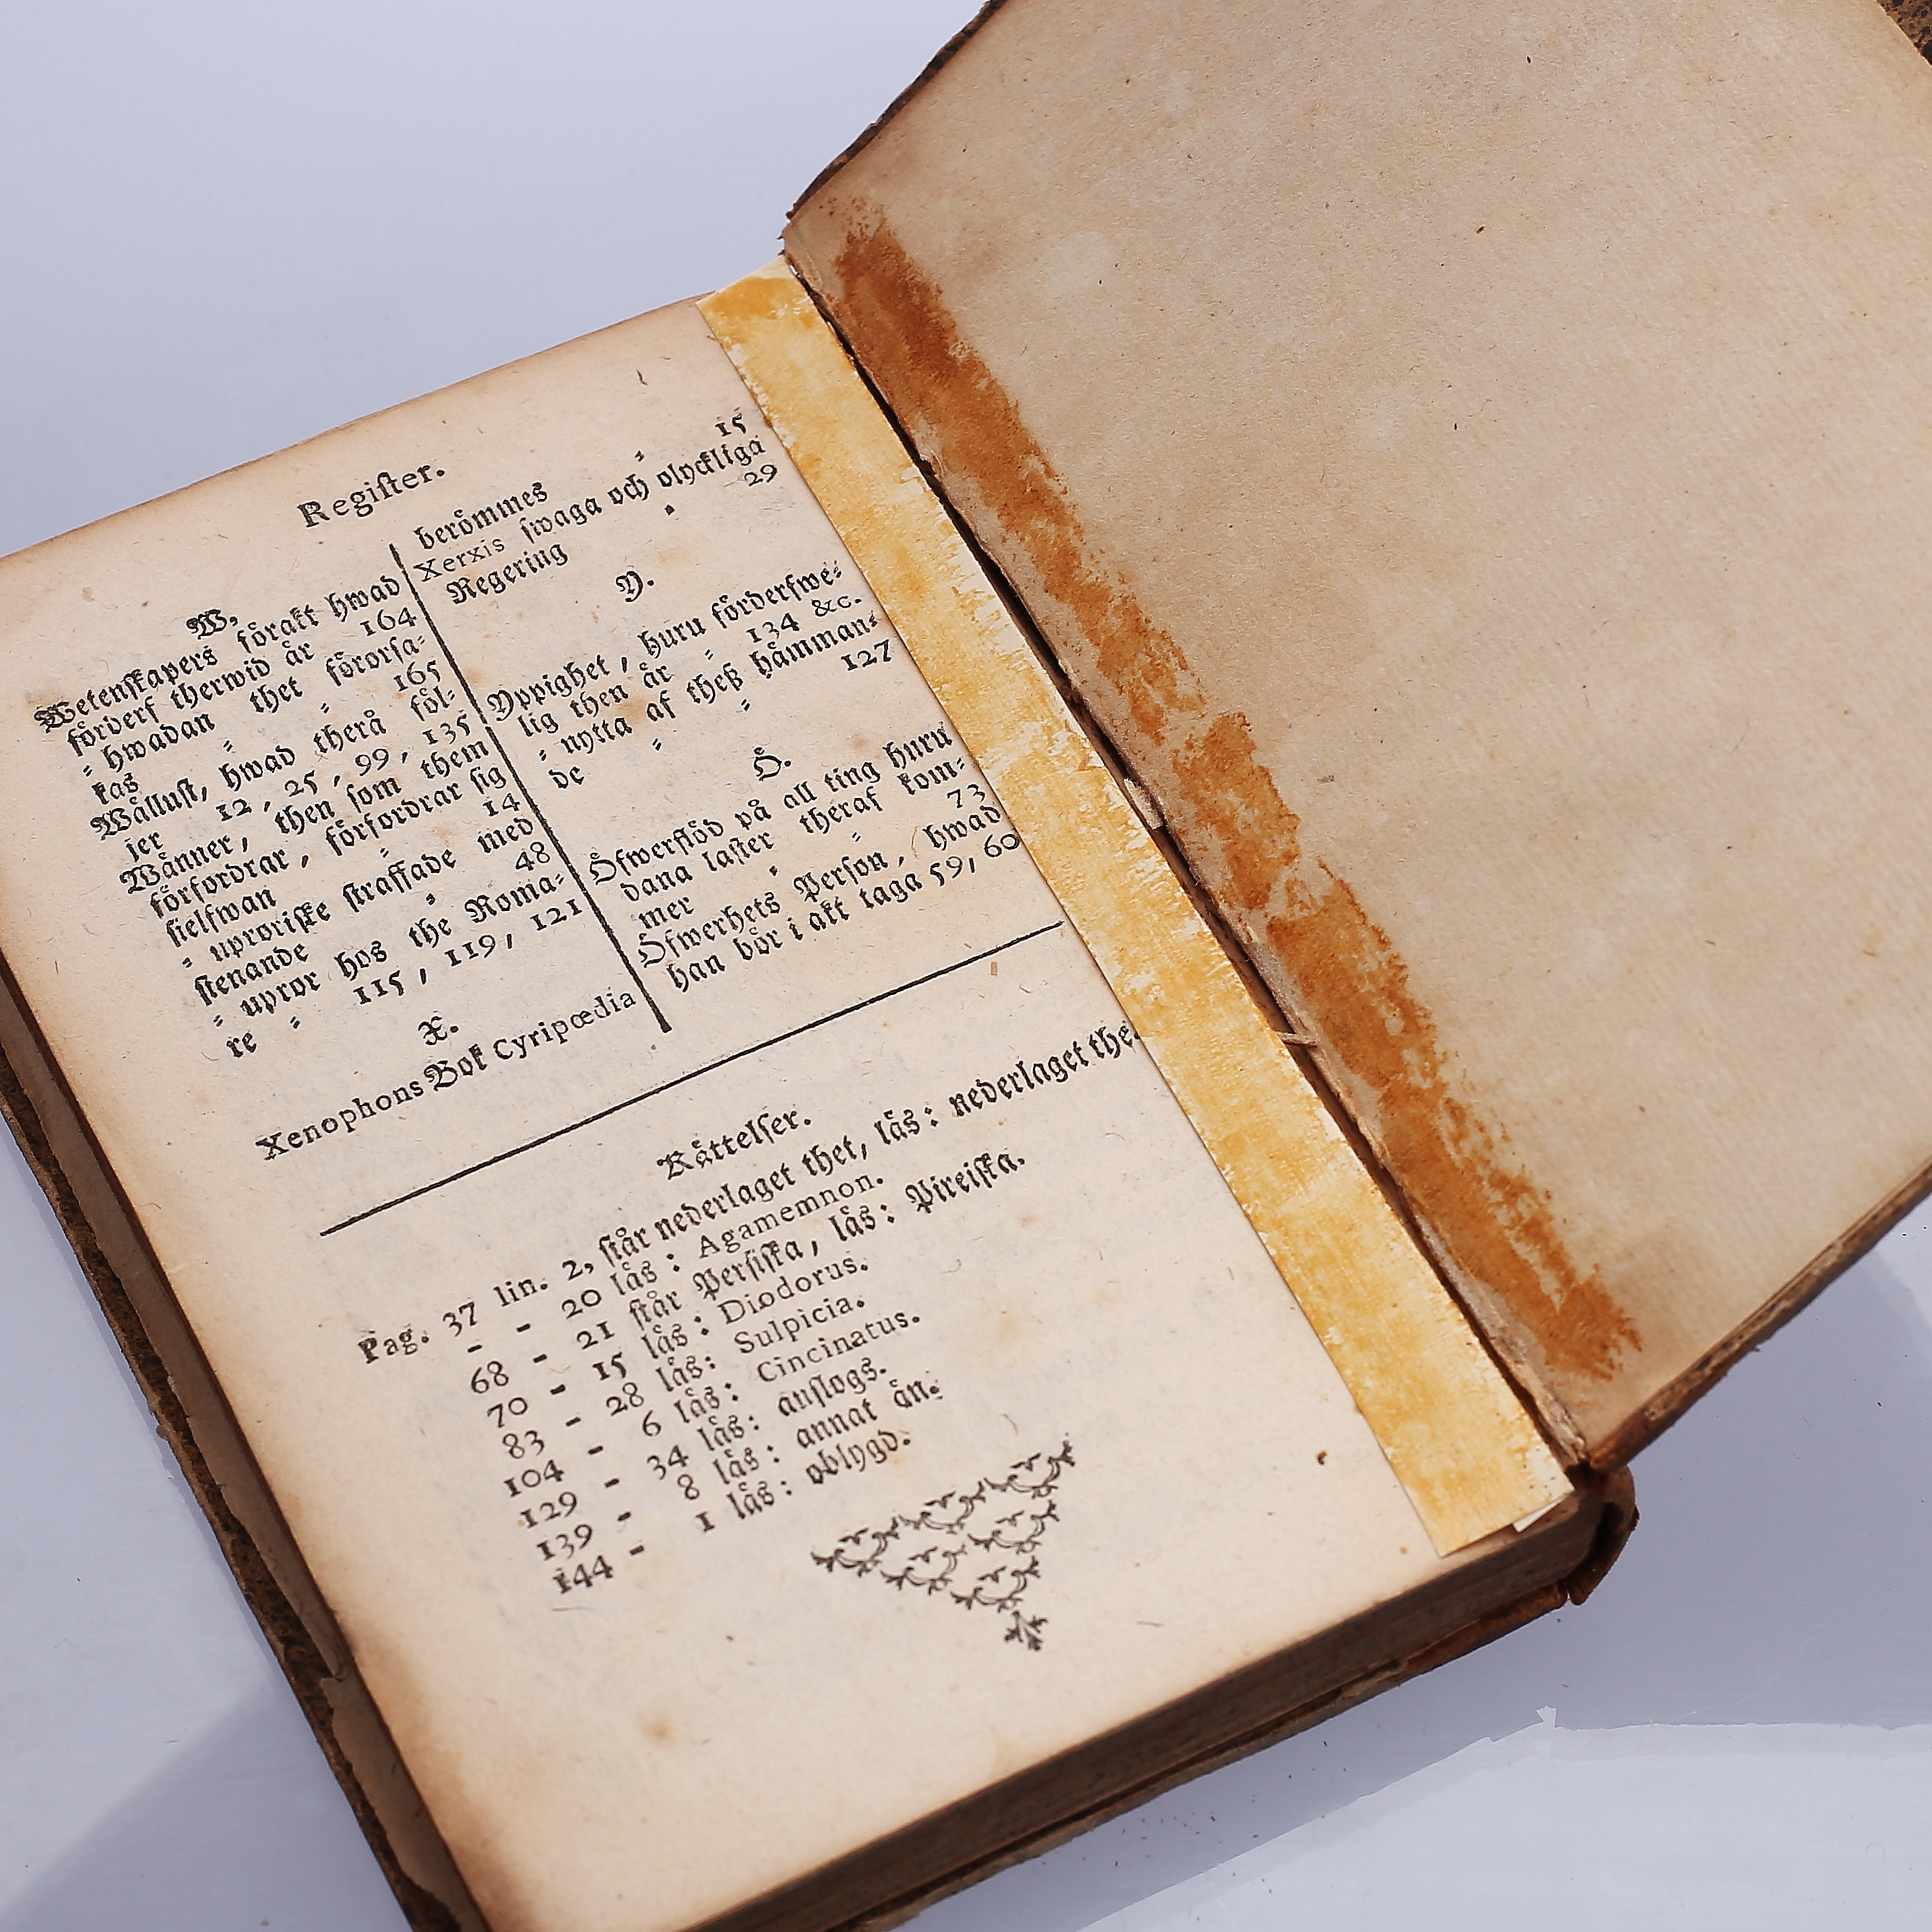 Register.
W.
Wetenskapers förakt hwad
förderf therwid är 164
= hwadan thet förorsa=
kas = = 165
Wällust, hwad therå föl=
jer 12, 25, 99, 135
Wänner, then som them
förfordrar, förfordrar sig
sielfwan = 14
= uproriske straffade med
stenande = 48
= upror hos the Roma=
re = 115, 119, 121
X.
Xenophons Bok Cyripœdia
berömmes = 15
Xerxis swaga och olyckliga
Regering = 29
Y.
Yppighet, huru förderfwe=
lig then är = 134 &c.
= nytta af theß hämman=
de = = 127
Ö.
Öfwerflöd på all ting huru
dana laster theraf kom=
mer = = 73
Öfwerhets Person, hwad
han bör i akt taga 59, 60
Rättelser.
Pag. 37 lin. 2, står nederlaget thet, läs: nederlaget the.
- - 20 läs: Agamemnon.
68 - 21 står Persiska, läs: Pireiska.
70 - 15 läs: Diodorus.
83 - 28 läs: Sulpicia.
104 - 6 läs: Cincinatus.
129 - 34 läs: anslogs.
139 - 8 läs: annat än.
144 - 1 läs: oblygd.